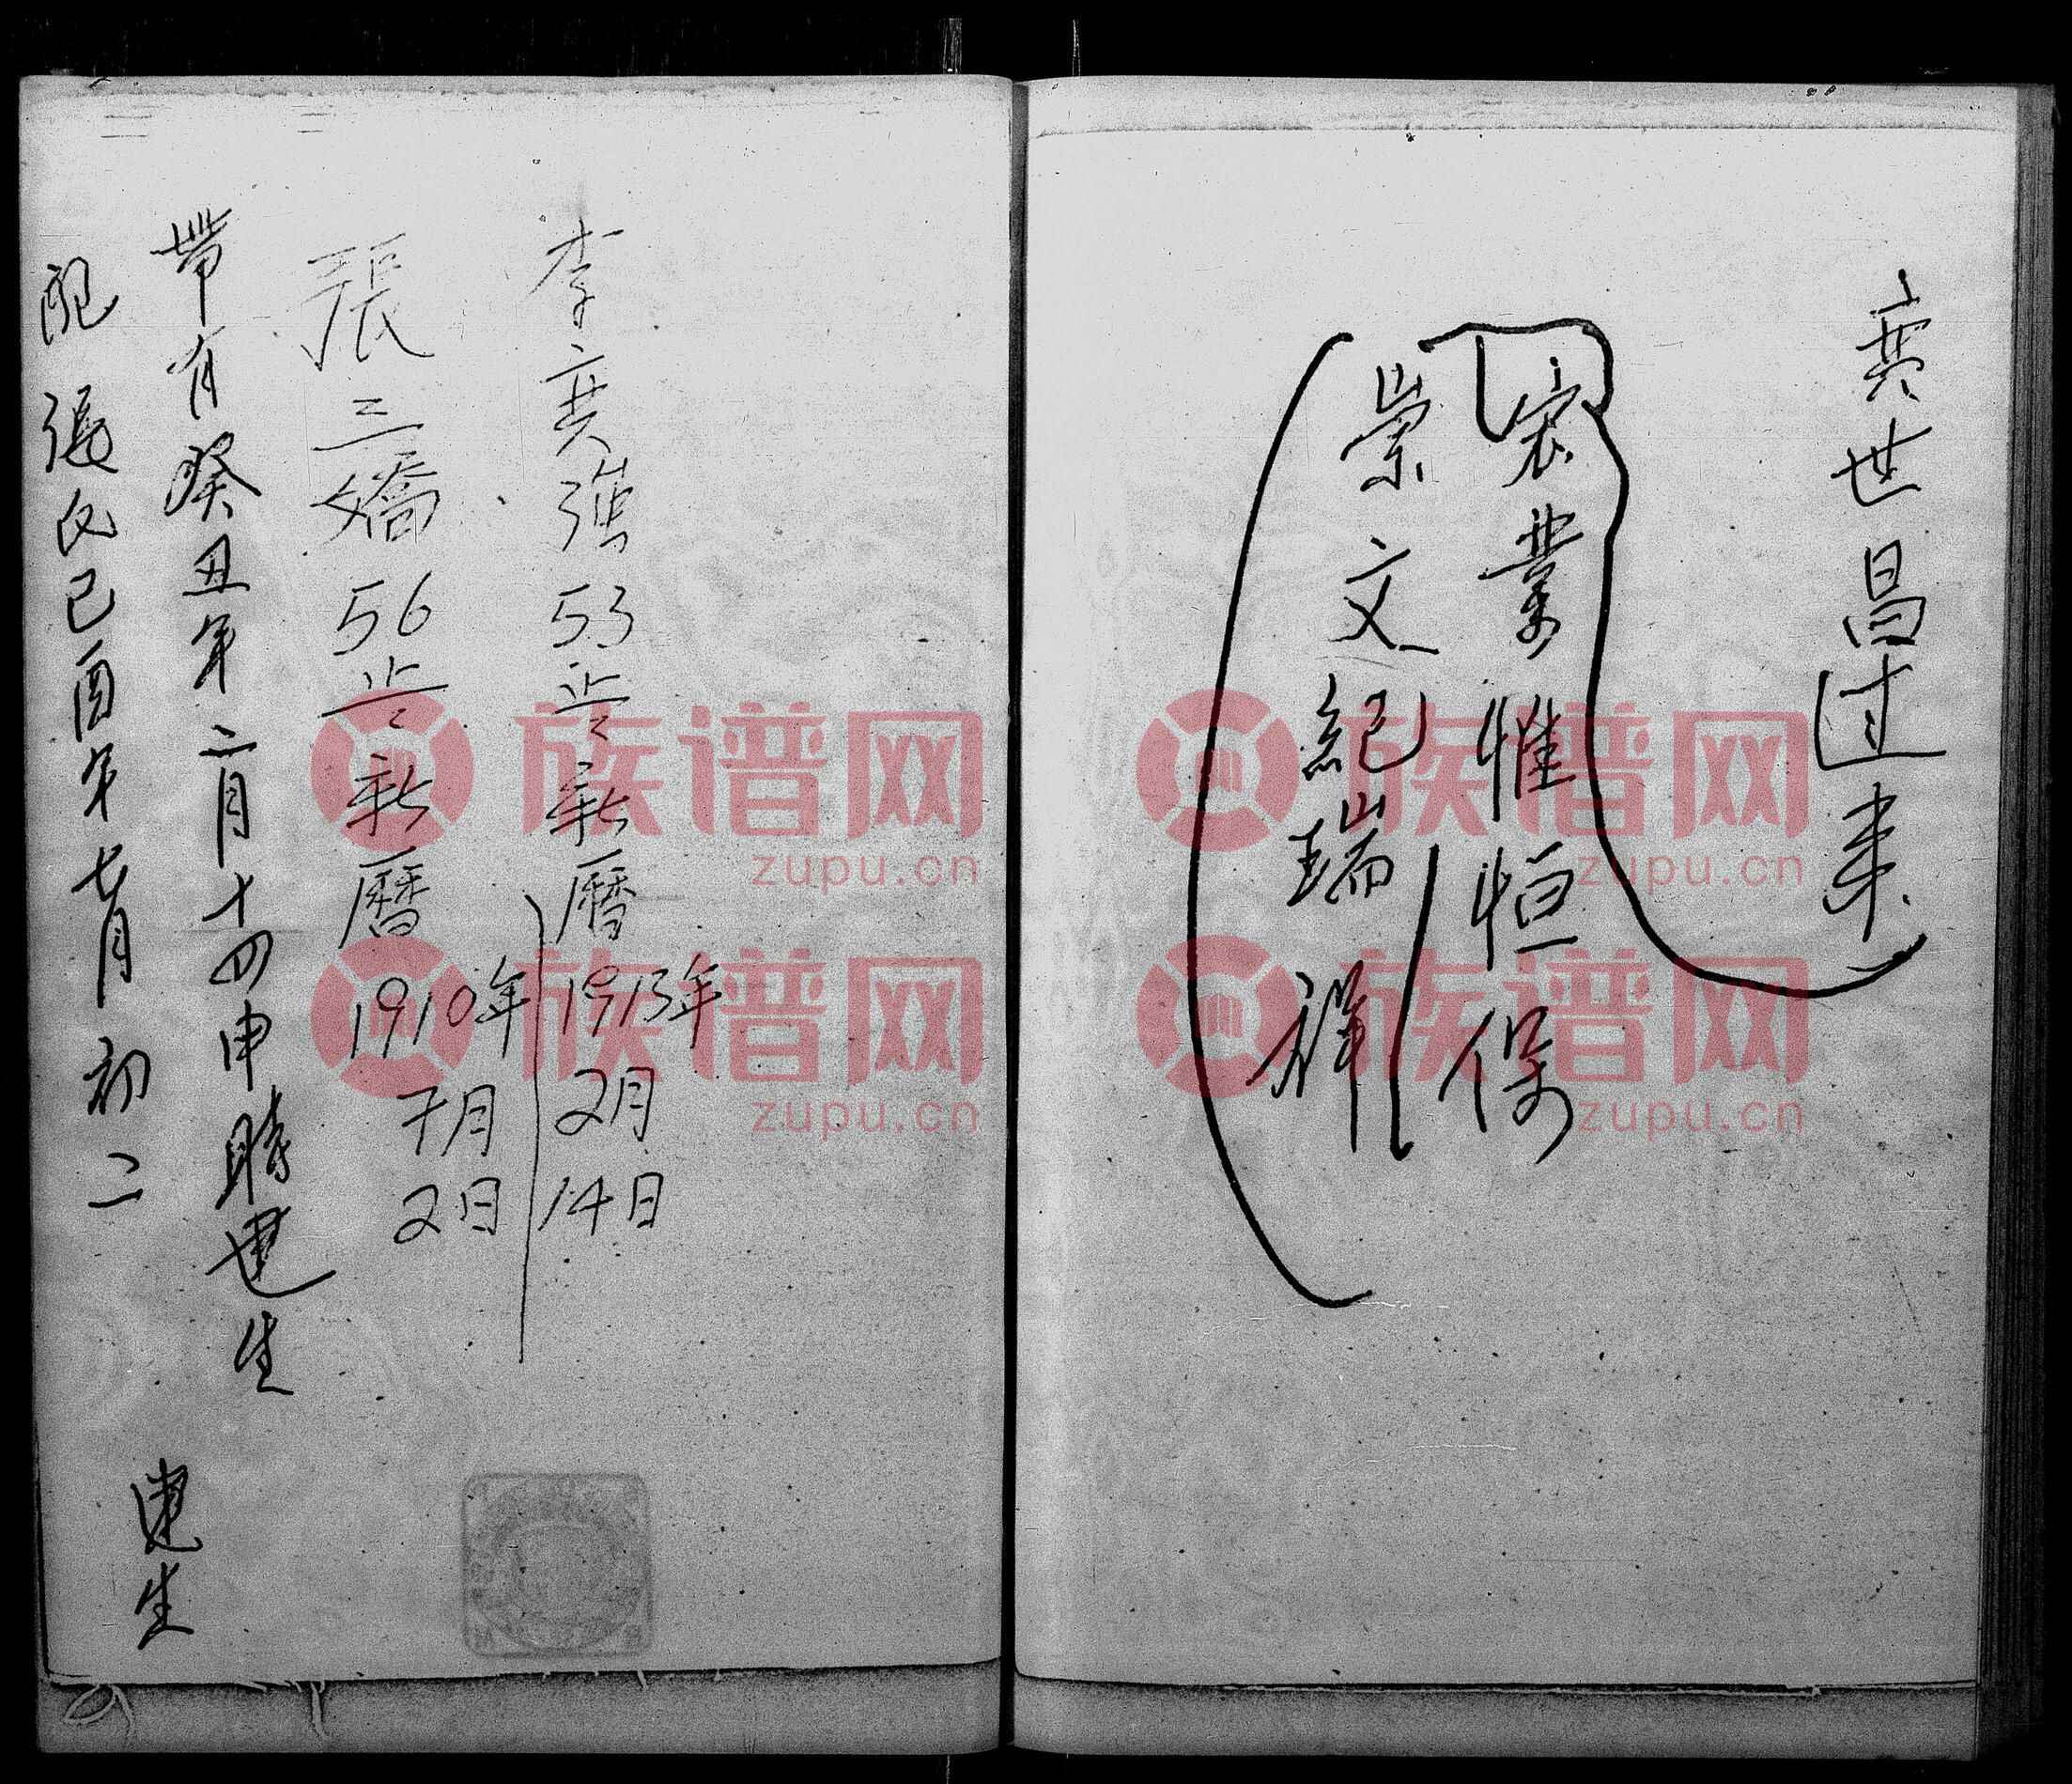 奕世昌过来
宏業惟恒保
崇文紀瑞祥
李奕强53岁新曆1913年2月14日
張三嬌56岁新曆1910年7月2日
带有癸丑年二月十四申時建生
配張氏己酉年七月初二建生
族谱网
zupu.cn
族谱网
zupu.cn
族谱网
zupu.cn
族谱网
zupu.cn